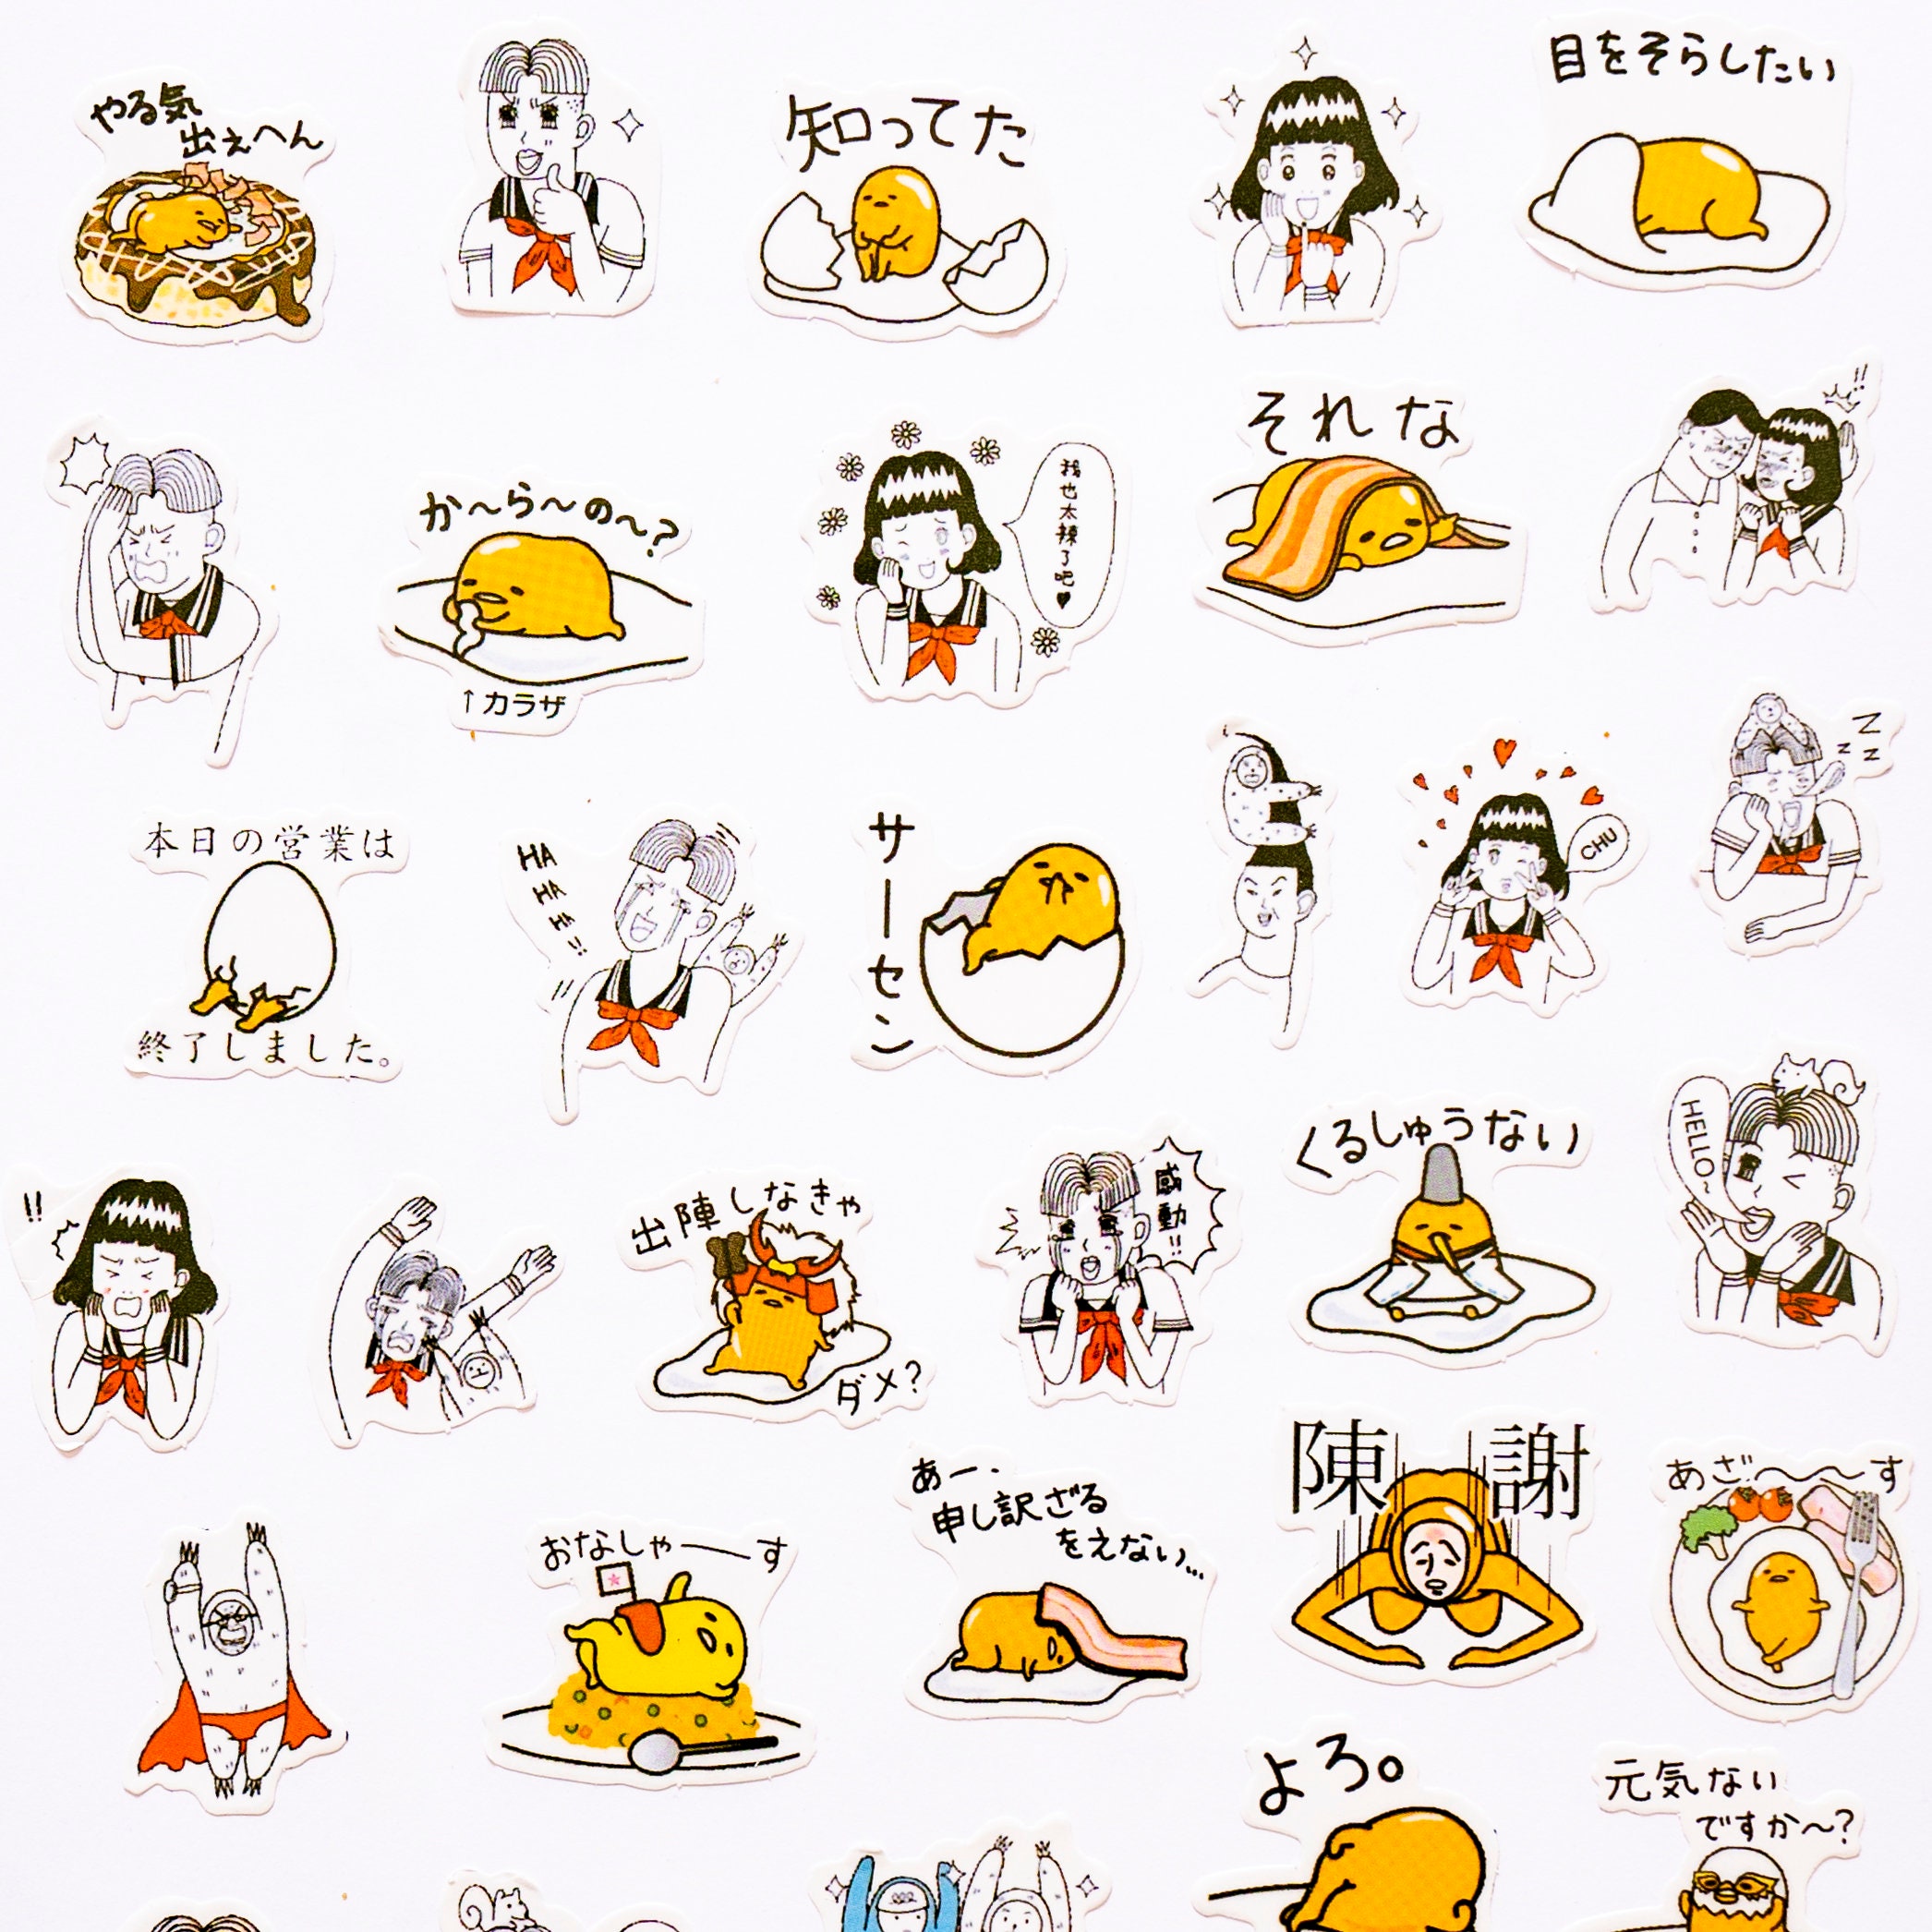 やる気
出えへん
知ってた
目をそらしたい
か〜ら〜の〜?
↑カラザ
我也太辣了吧♥
それな
!!
本日の営業は
終了しました。
HA
HA
HA!!
サーセン
CHU
Z
z z
!!
出陣しなきゃ
ダメ?
感動!!
くるしゅうない
HELLO~
おなしゃ──す
あー、
申し訳ざる
をえない...
陳謝
あざ〜〜す
よろ。
元気ない
ですか〜?